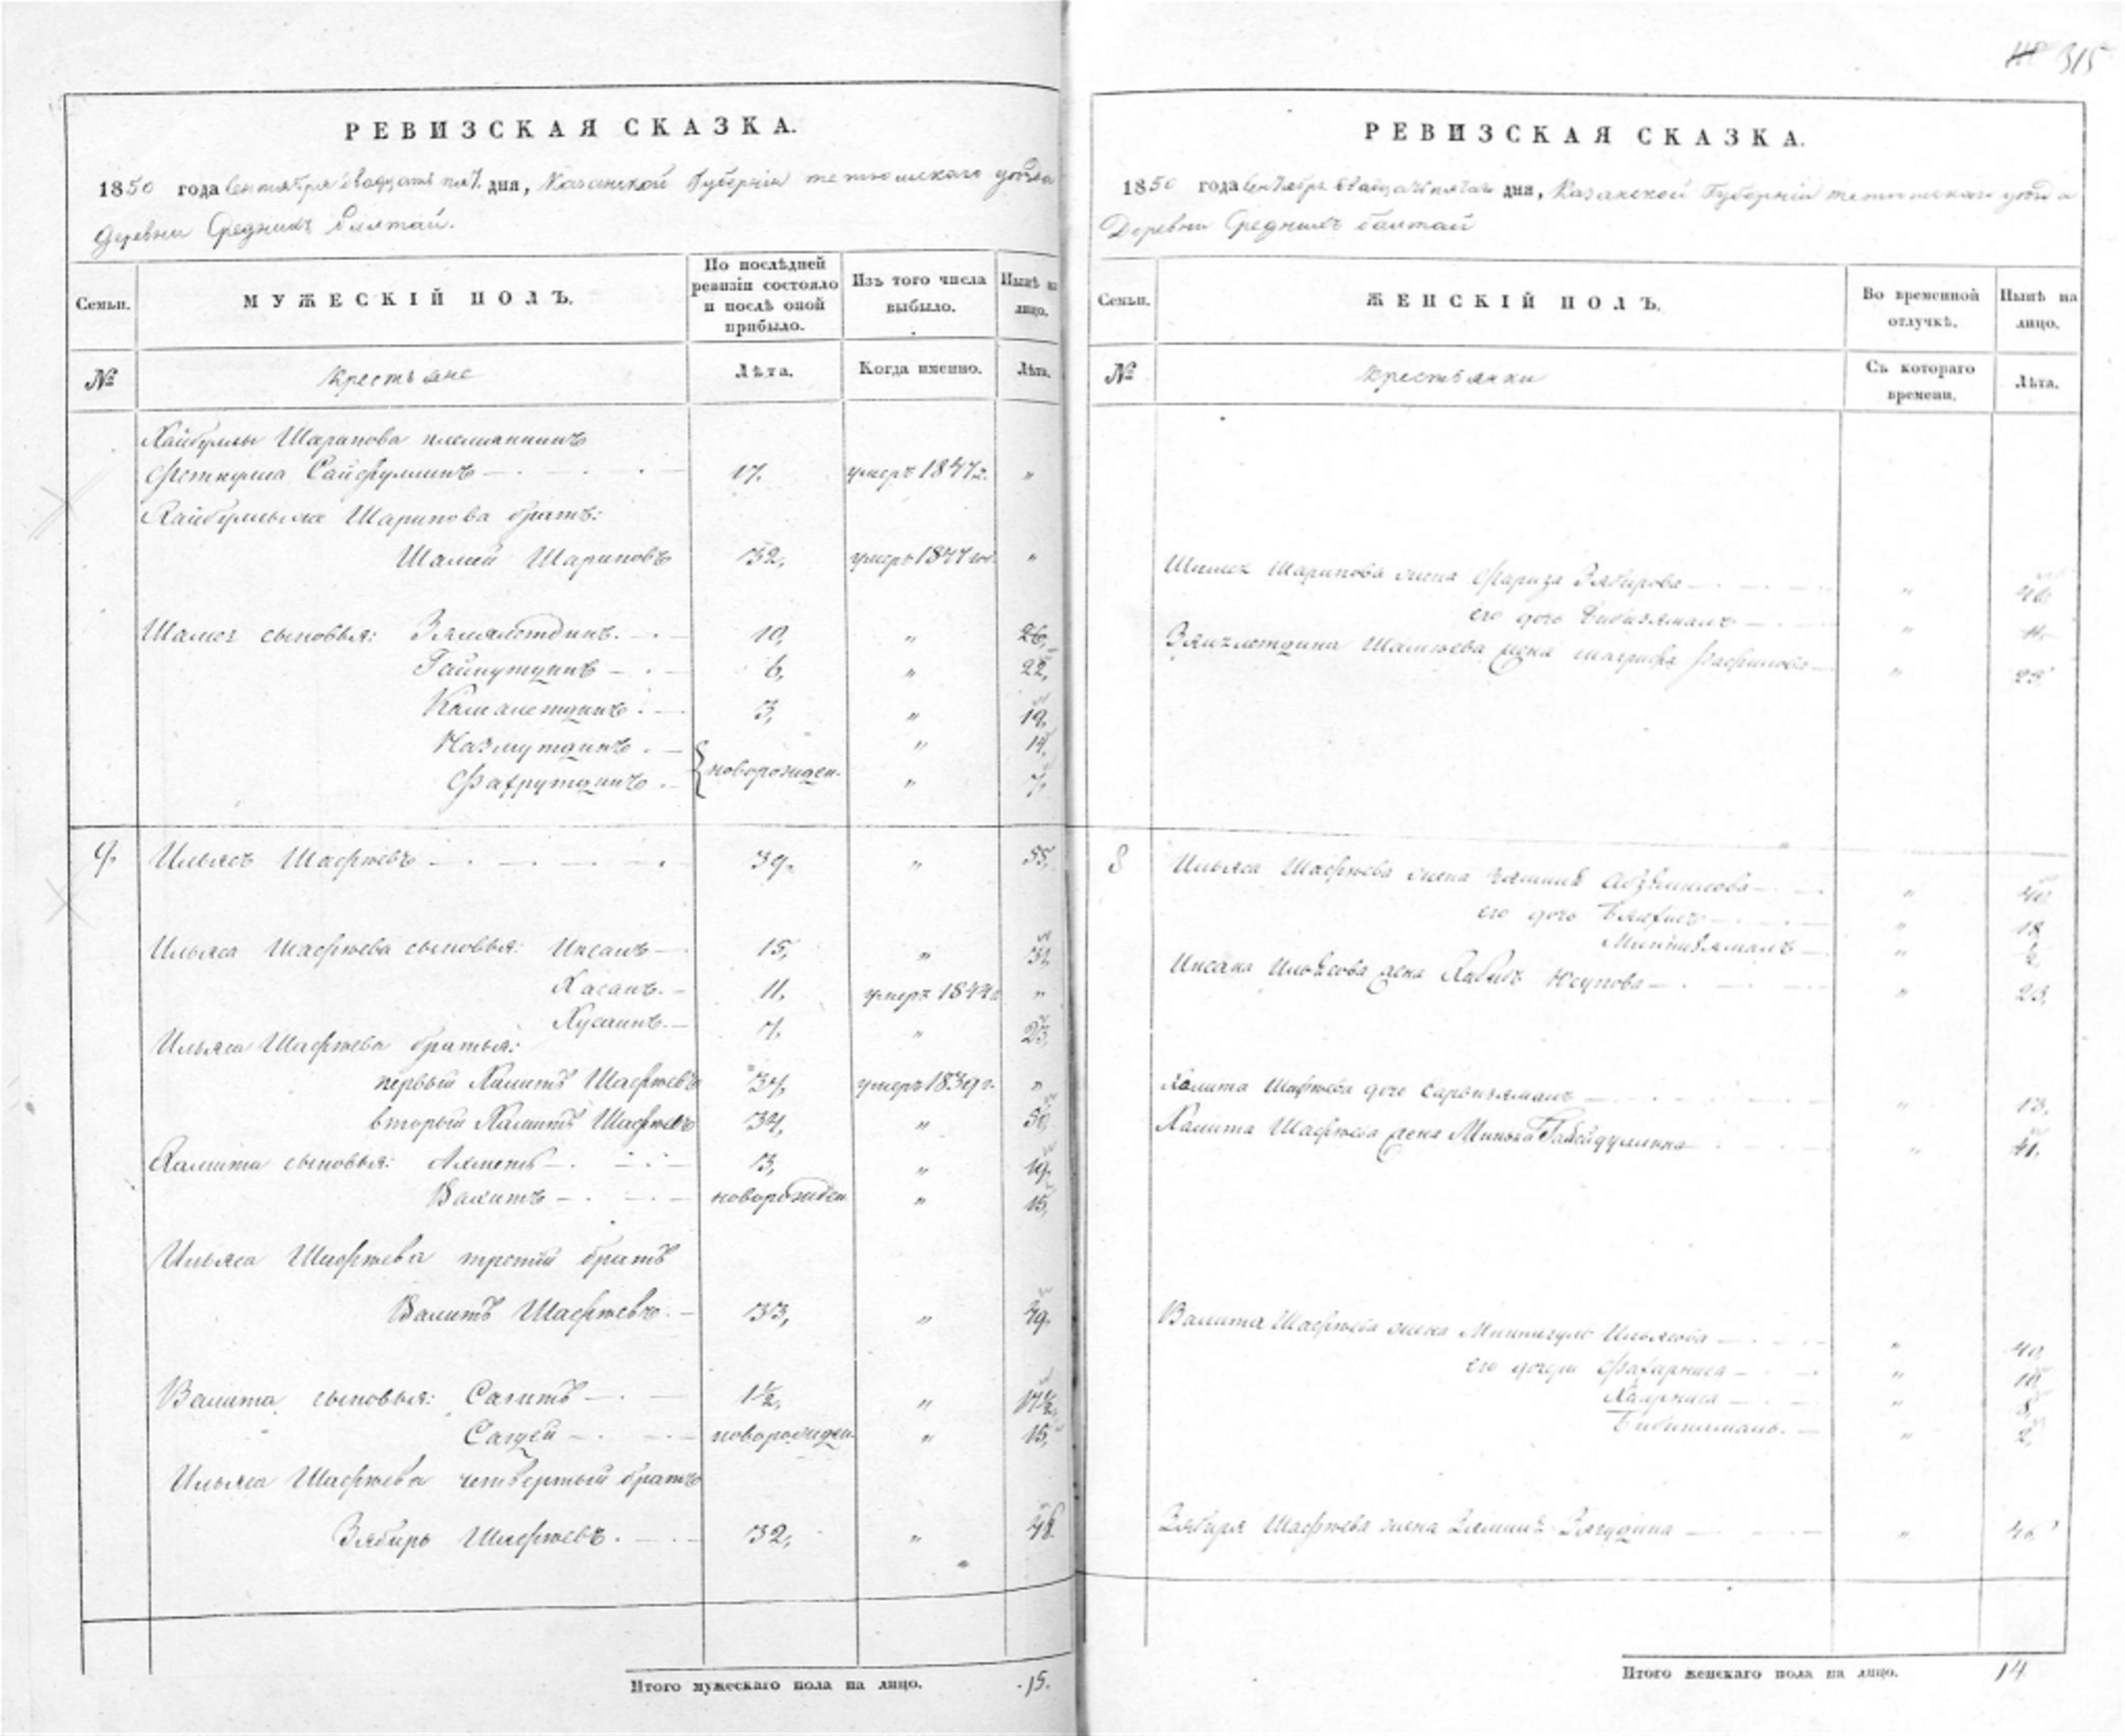 315
РЕВИЗСКАЯ СКАЗКА.
1850 года Сентября двадцать пят. дня, Казанской Губернии тетюшскаго уезда
деревни Средних Балтай.
Семьи.
МУЖЕСКІЙ ПОЛЪ.
По послѣдней ревизіи состояло и послѣ оной прибыло.
Изъ того числа выбыло.
Нынѣ на лицо.
№
Крестьяне
Лѣта.
Когда именно.
Лѣта.
Хайбуллы Шарипова племянникъ
Феткулла Сайфуллинъ 17. умеръ 1847 г. "
Хайбуллы же Шарипова братъ:
Шамей Шариповъ 32, умеръ 1847 го. "
Шамея сыновья: Зямалетдинъ. 10, " 26,
Гайнутдинъ 6, " 22,
Камалетдинъ 3, " 19,
Назмутдинъ " 14,
новорожден.
Фахрутдинъ " 7,
9. Ильясъ Шафѣевъ 39. " 55,
Ильяса Шафѣева сыновья: Иксанъ 15, " 31,
Хасанъ. 11, умеръ 1844 г. "
Хусаинъ. 7, " 23,
Ильяса Шафѣева братья:
первый Хамитъ Шафѣевъ 37, умеръ 1839 г. "
второй Хамитъ Шафѣевъ 34, " 50,
Хамита сыновья: Ахметъ 3, " 19,
Вахитъ новорожден " 15,
Ильяса Шафѣева третій братъ
Валитъ Шафѣевъ. 33, " 49.
Валита сыновья: Сагитъ 1½, " 17½,
Сагдей новорожден. " 15,
Ильяса Шафѣева четвертый братъ
Зябиръ Шафѣевъ. 32, " 48.
Итого мужескаго пола на лицо. 15.
РЕВИЗСКАЯ СКАЗКА.
1850 года Сентября двадцать пятаго дня, Казанской Губерніи тетюшскаго уезда
Деревни Средних Балтай
Семьи.
ЖЕНСКІЙ ПОЛЪ.
Во временной отлучкѣ.
Нынѣ на лицо.
№
Крестьянки
Съ котораго времени.
Лѣта.
Шамея Шарипова жена Фариза Зябирова " 46
его дочь Бибизямалъ " 11.
Зямалетдина Шамѣева жена " 25,
Ильяса Шафѣева жена " 40
его дочь " 18
Минзямалъ "
Иксана Ильясова жена Хабиба Юсупова " 23,
Хамита Шафѣева дочь Сарбизямалъ " 13,
Хамита Шафѣева жена " 41,
Валита Шафѣева жена Миннигуль Ильясова " 40,
его дочери Фахарниса " 10,
Хаярниса " 8,
" 2,
Зябиря Шафѣева жена " 46,
Итого женскаго пола на лицо. 14